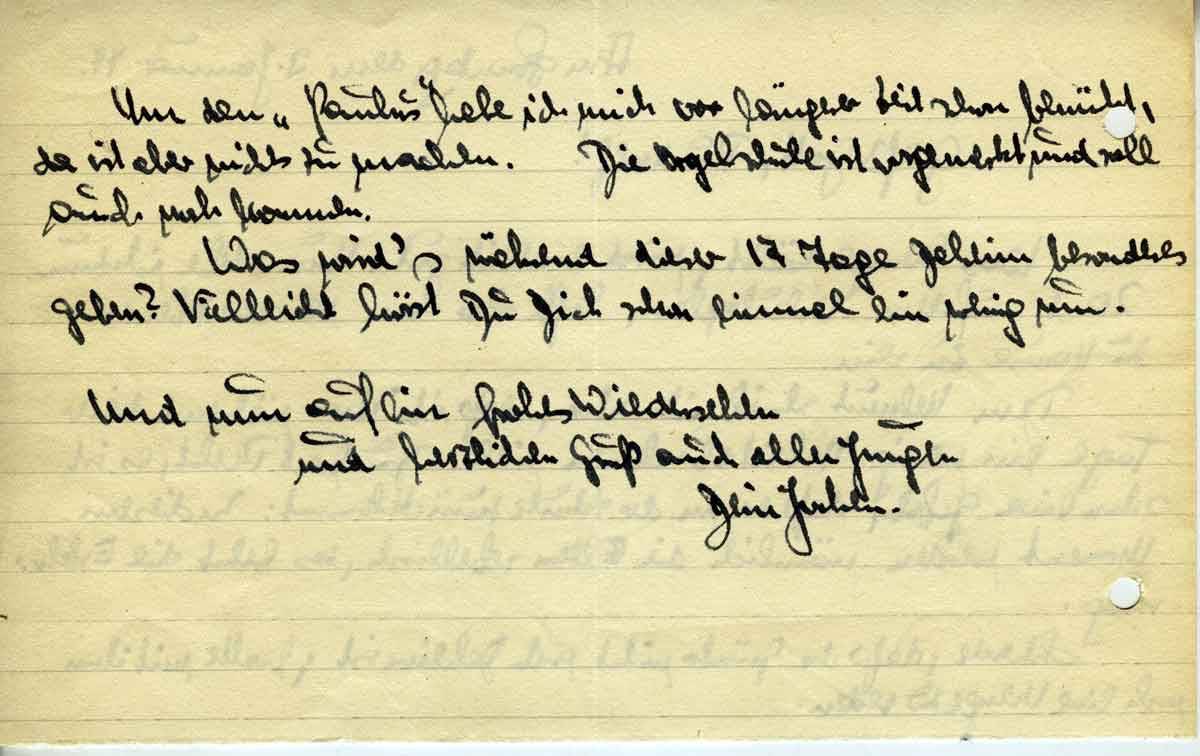 Um den „Paulus“ habe ich mich vor längerer Zeit schon bemüht,
da ist aber nichts zu machen. Die Orgelstube ist vorgemerkt und soll
auch noch kommen.
Was wird's während dieser 17 Tage Jochen besonderes
geben? Vielleicht hörst Du Dich schon einmal ein wenig um.
Und nun auf ein frohes Wiedersehen
und herzlichen Gruß auch allen Jungen
Dein Jochen.